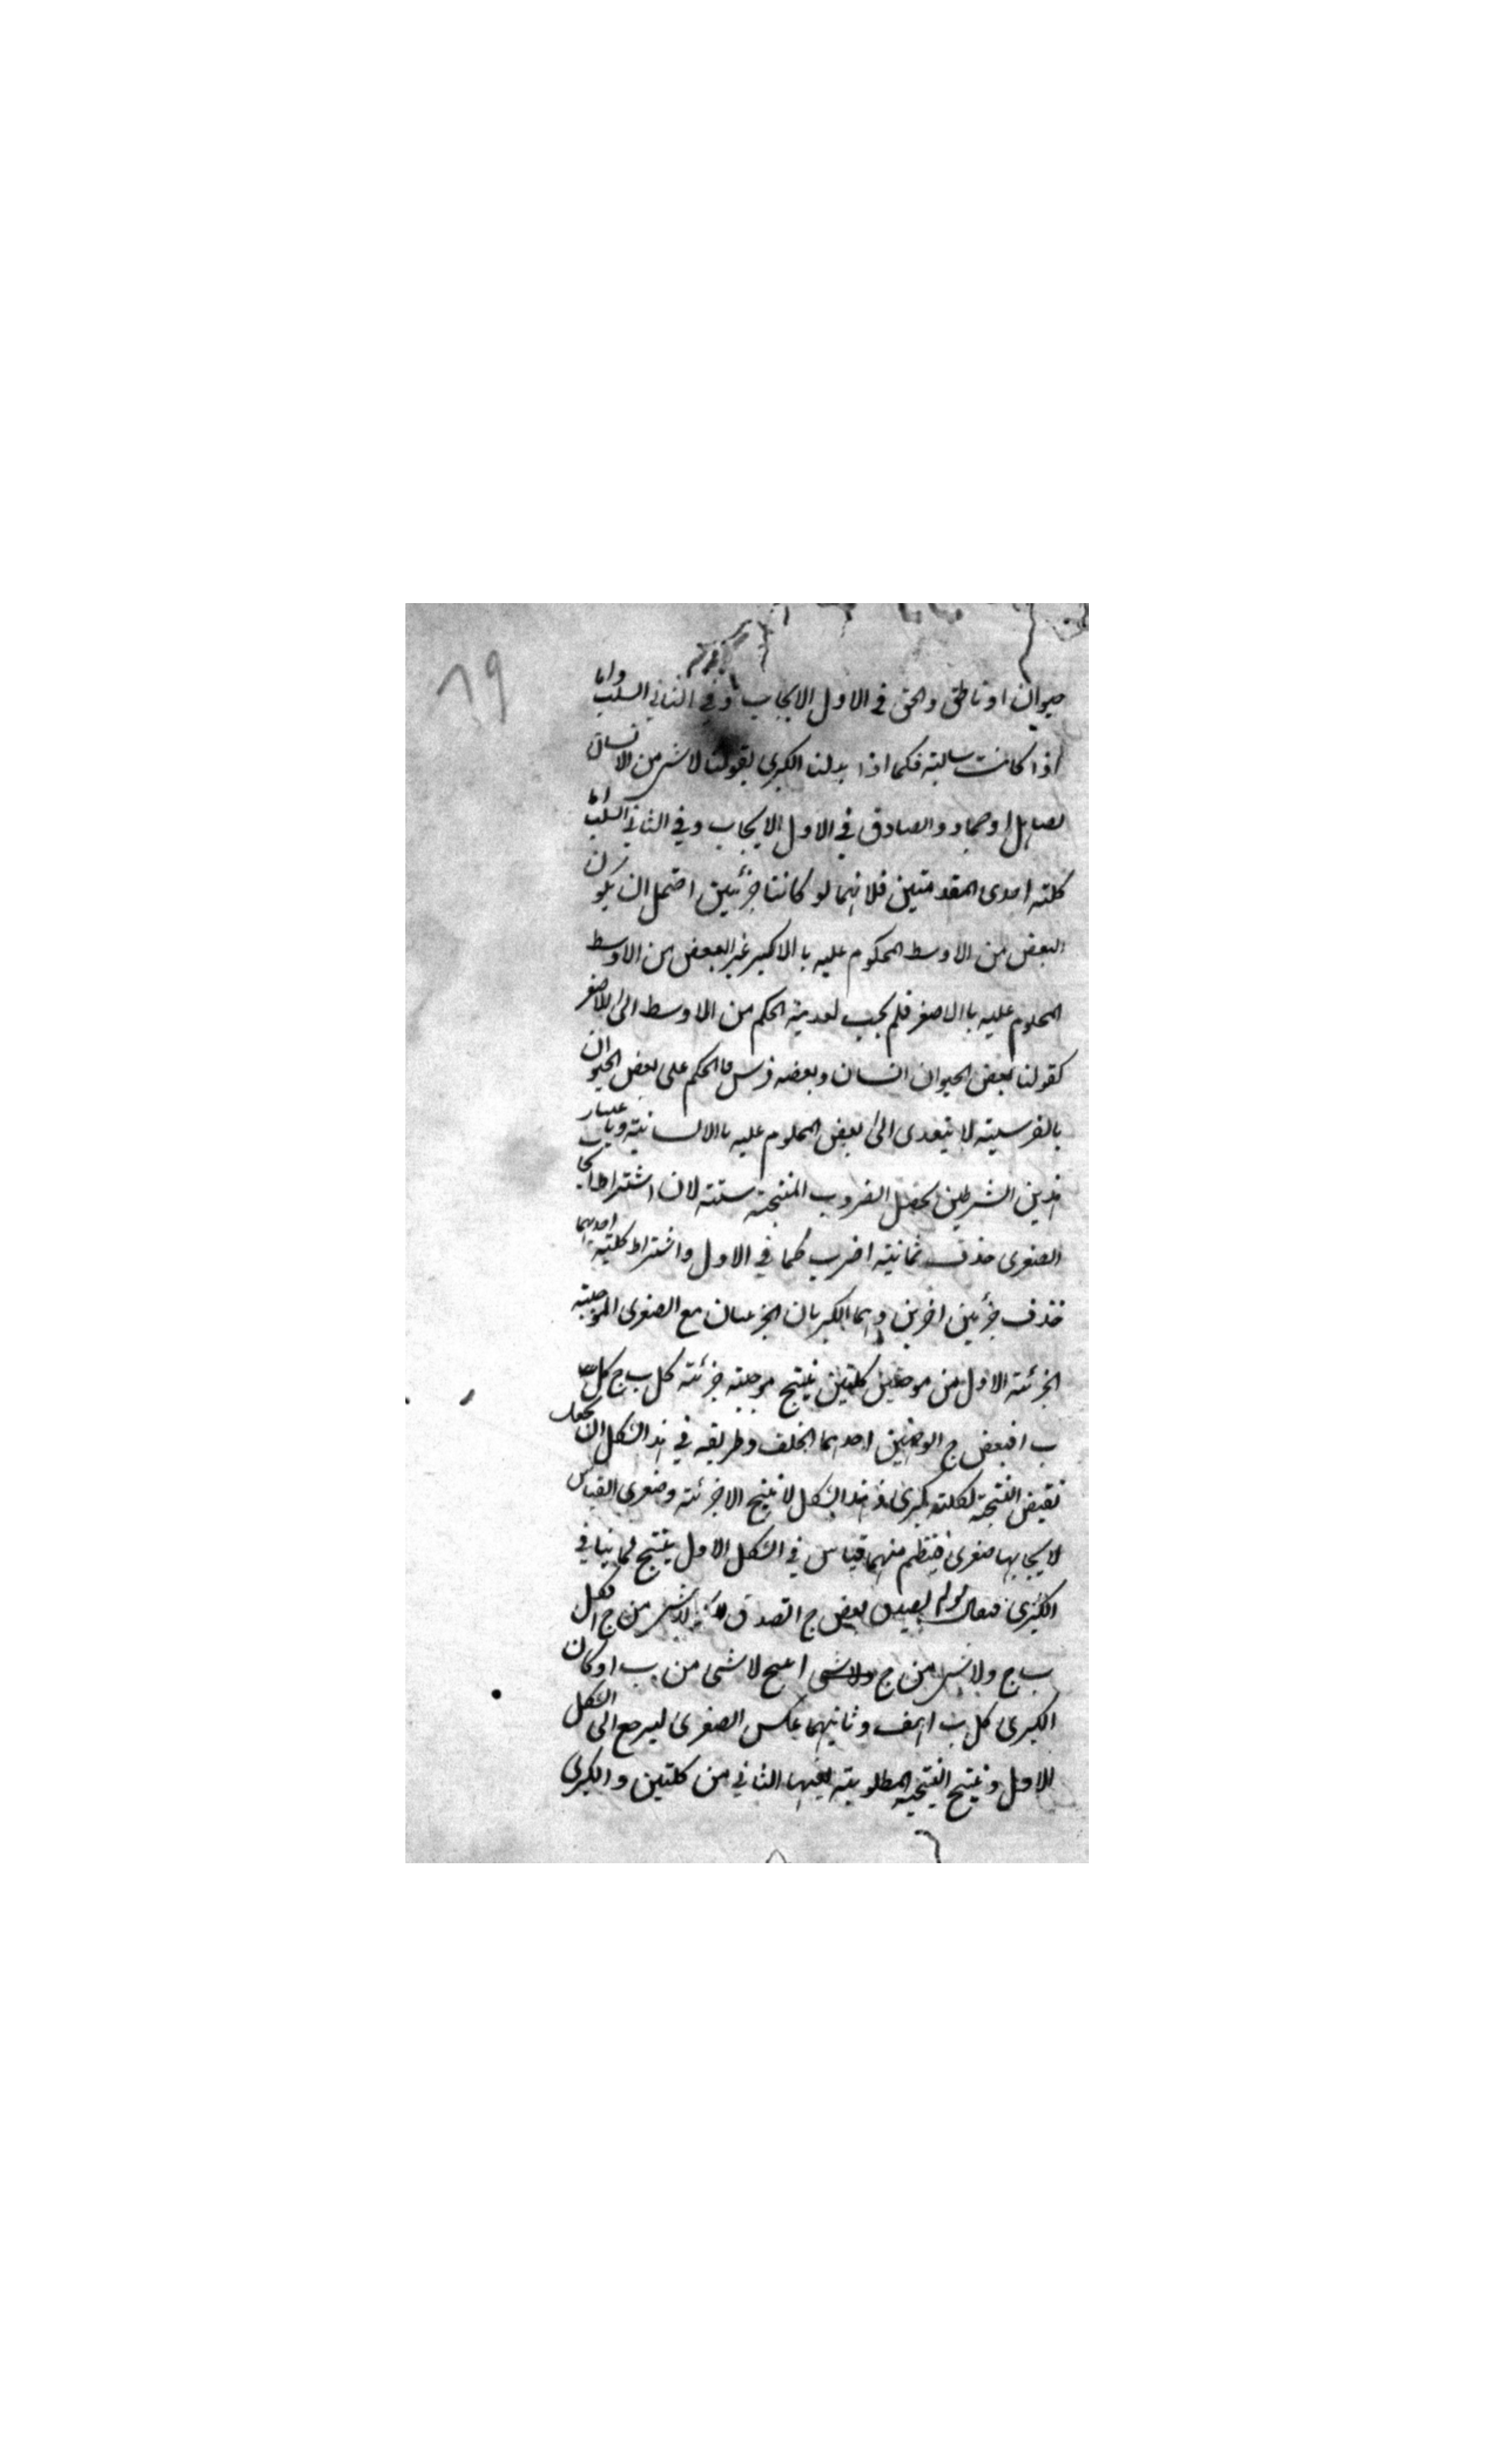 ٨٩
حيوان او ناطق والحق في الاول الايجاب وفي الثاني السلب واما
اذا كانت سالبته فكما اذا بدلنا الكبرى بقولنا لا شى من الانسان
بصاهل او حمار والصادق في الاول الايجاب وفي الثاني السلب اما
كليته احدى المقدمتين فلانهما لو كانتا جزئيتين احتمل ان يكون
البعض من الاوسط المحكوم عليه بالاكبر غير البعض من الاوسط
المحكوم عليه باالاصغر فلم يجب تعدية الحكم من الاوسط الى الاصغر
كقولنا بعض الحيوان انسان وبعضه فرس فالحكم على بعض الحيوان
بالفرسيته لا يتعدى الى بعض المحكوم عليه باالانسانيته وباعتبار
هذين الشرطين تحصل الضروب المنتجته ستته لان اشتراط ايجا
الصغرى حذف ثمانيته اضرب كما في الاول واشتراط كليته احديهما
حذف جزئين اخرين وهما الكبريان الجزئيتان مع الصغرى الموجبته
الجزئته الاول من موجبتين كليتين ينتج موجبته جزئته كل ب ج كل
ب ا فبعض ج الوجهين احدهما الخلف وطريقه في هذا الشكل ان يجعل
نقيض النتيجته لكليته كبرى اذ هذا الشكل لا ينتج الا جزئته وصغرى القياس
لايجابها صغرى فينتظم منهما قياس في الشكل الاول ينتج لما ينافي
الكبرى فيقال لو لم يصدق بعض ج ا لصدق لا شى من ج ا فكل
ب ج ولا شى من ج ا ينتج لا شى من ب ا وكان
الكبرى كل ب ا هف وثانيهما عكس الصغرى ليرجع الى الشكل
الاول وينتج النتيجته المطلوبته بعينها الثاني من كليتين والكبرى